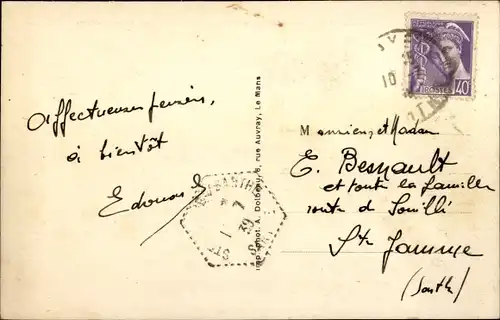 Affectueuses pensées,
à bientôt
Edouard
Imp. Phot. A. Dolbeau, 8, rue Auvray, Le Mans
POSTES
40
Monsieur et Madame
E. Besnault
et toute la famille
route de Souillé
Ste Jamme
(Sarthe)